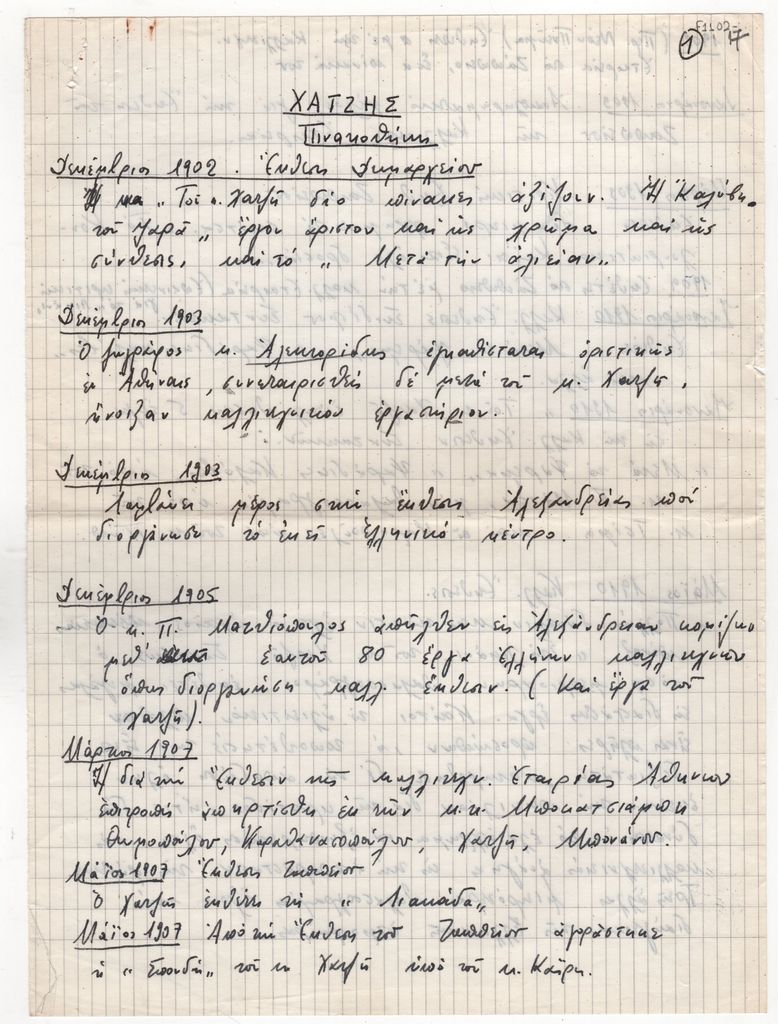 F1102-
1 17
ΧΑΤΖΗΣ
Πινακοθήκη
Δεκέμβριος 1902. Ἔκθεσις Δημαρχείου
" Τοῦ κ. Χατζῆ δύο πίνακες ἀξίζουν. Ἡ "Καλύβη
τοῦ Ψαρᾶ" ἔργον ἄριστον καὶ ὡς χρῶμα καὶ ὡς
σύνθεσις, καὶ τό " Μετά την ἁλιείαν"
Δεκέμβριος 1903
Ὁ ζωγράφος κ. Ἀλεκτορίδης ἐγκαθίσταται ὁριστικῶς
ἐν Ἀθήναις, συνεταιρισθείς δέ μετά τοῦ κ. Χατζῆ,
ἤνοιξαν καλλιτεχνικόν ἐργαστήριον.
Δεκέμβριος 1903
Λαμβάνει μέρος στην ἔκθεσις Ἀλεξανδρείας πού
διοργάνωσε τό ἐκεῖ ἑλληνικό κέντρο.
Δεκέμβριος 1905
Ὁ κ. Π. Ματθιόπουλος ἀπῆλθεν εἰς Ἀλεξάνδρειαν κομίζων
μεθ' ἑαυτοῦ 80 ἔργα Ἑλλήνων καλλιτεχνῶν
ὅπως διοργανώση καλλ. ἔκθεσιν. ( Καί ἔργα τοῦ
Χατζῆ).
Μάρτιος 1907
Ἡ διά την Ἔκθεσιν τῆς καλλιτεχν. Ἑταιρείας Ἀθηνῶν
ἐπιτροπή ἀπηρτίσθη ἐκ τῶν κ.κ. Μποκατσιάμπη
Θωμοπούλου, Καραθανασοπούλου, Χατζῆ, Μπονάνου.
Μάϊος 1907 Ἔκθεσις Ζαππείου
Ὁ Χατζῆς ἐκθέτει τη " Λιακάδα"
Μάϊος 1907 Ἀπό την Ἔκθεση τοῦ Ζαππείου ἀγοράστηκε
ἡ " Σπουδή" τοῦ κ. Χατζῆ ὑπό τοῦ κ. Καΐρη.